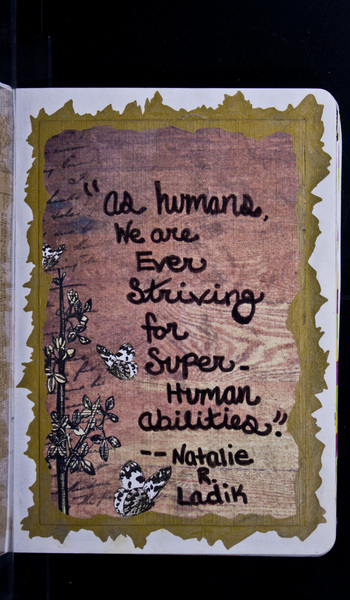 "as humans,
We are
Ever
Striving
for
Super-
Human
abilities."
-- Natalie
R.
Ladik